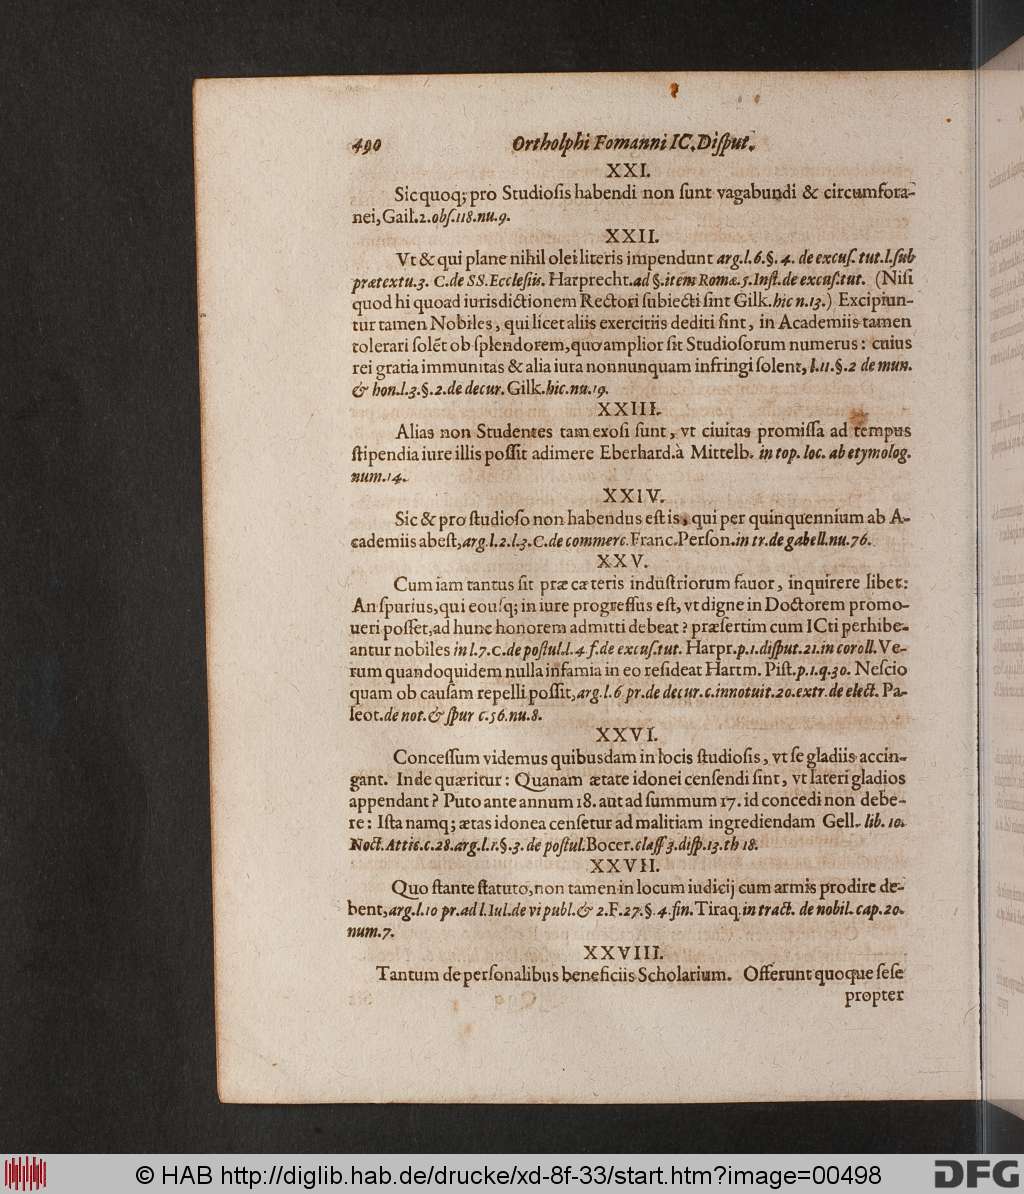 490 Ortholphi Fomanni IC. Diſput.
XXI.
Sic quoq; pro Studioſis habendi non ſunt vagabundi & circumfora-
nei, Gail. 2. obſ. 118. nu. 9.
XXII.
Vt & qui plane nihil olei literis impendunt arg. l. 6. §. 4. de excuſ. tut. l. ſub
prætextu. 3. C. de SS. Eccleſiis. Harprecht. ad §. item Romæ. 5. Inſt. de excuſ. tut. (Niſi
quod hi quoad iurisdictionem Rectori ſubiecti ſint Gilk. hic n. 13.) Excipiun-
tur tamen Nobiles, qui licet aliis exercitiis dediti ſint, in Academiis tamen
tolerari ſolẽt ob ſplendorem, quo amplior ſit Studioſorum numerus: cuius
rei gratia immunitas & alia iura nonnunquam infringi ſolent, l. 11. §. 2 de mun.
& hon. l. 3. §. 2. de decur. Gilk. hic. nu. 19.
XXIII.
Alias non Studentes tam exoſi ſunt, vt ciuitas promiſſa ad tempus
ſtipendia iure illis poſſit adimere Eberhard. à Mittelb. in top. loc. ab etymolog.
num. 14.
XXIV.
Sic & pro ſtudioſo non habendus eſt is, qui per quinquennium ab A-
cademiis abeſt, arg. l. 2. l. 3. C. de commerc. Franc. Perſon. in tr. de gabell. nu. 76.
XXV.
Cum iam tantus ſit præ cæteris induſtriorum fauor, inquirere libet:
An ſpurius, qui eouſq; in iure progreſſus eſt, vt digne in Doctorem promo-
ueri poſſet, ad hunc honorem admitti debeat? præſertim cum ICti perhibe-
antur nobiles in l. 7. C. de poſtul. l. 4. f. de excuſ. tut. Harpr. p. 1. diſput. 21. in coroll. Ve-
rum quandoquidem nulla infamia in eo reſideat Hartm. Piſt. p. 1. q. 30. Neſcio
quam ob cauſam repelli poſſit, arg. l. 6 pr. de decur. c. innotuit. 20. extr. de elect. Pa-
leot. de not. & ſpur c. 56. nu. 8.
XXVI.
Conceſſum videmus quibusdam in locis ſtudioſis, vt ſe gladiis accin-
gant. Inde quæritur: Quanam ætate idonei cenſendi ſint, vt lateri gladios
appendant? Puto ante annum 18. aut ad ſummum 17. id concedi non debe-
re: Iſta namq; ætas idonea cenſetur ad malitiam ingrediendam Gell. lib. 10.
Noct. Attic. c. 28. arg. l. 1. §. 3. de poſtul. Bocer. claſſ 3. diſp. 13. th 18.
XXVII.
Quo ſtante ſtatuto, non tamen in locum iudicij cum armis prodire de-
bent, arg. l. 10 pr. ad l. Iul. de vi publ. & 2. F. 27. §. 4. fin. Tiraq. in tract. de nobil. cap. 20.
num. 7.
XXVIII.
Tantum de perſonalibus beneficiis Scholarium. Offerunt quoque ſeſe
propter
© HAB http://diglib.hab.de/drucke/xd-8f-33/start.htm?image=00498
DFG